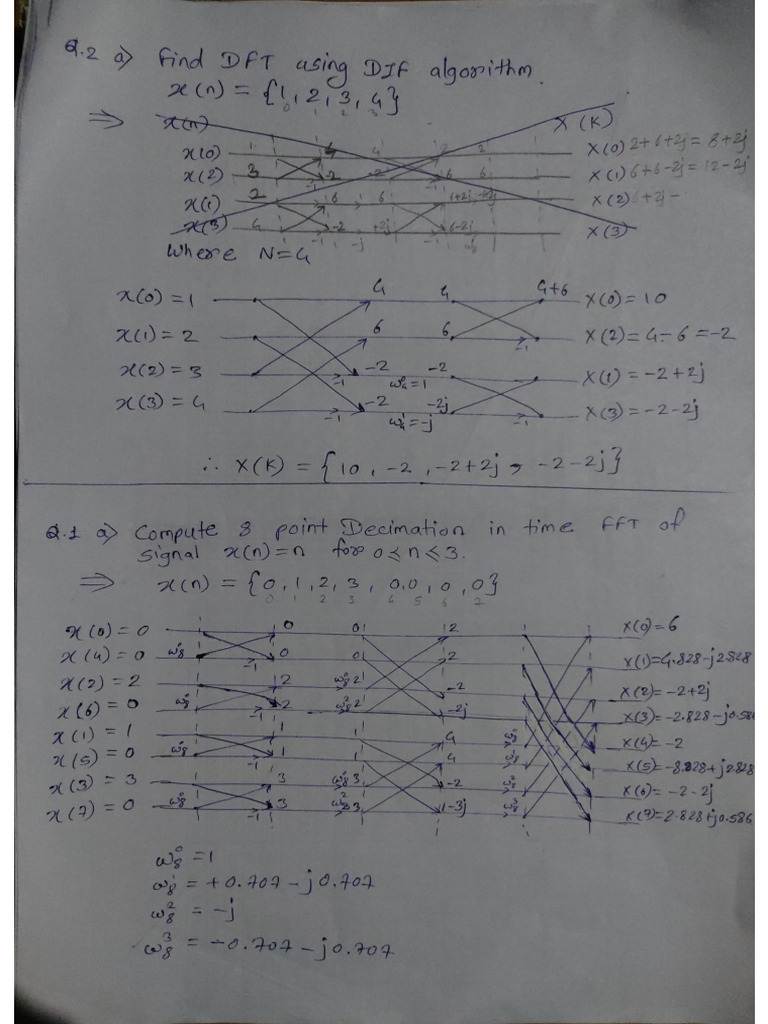 Q.2 a) Find DFT using DIF algorithm.
x(n) = {1, 2, 3, 4}
0 1 2 3
⇒ x(n) X(K)
x(0) 1 4 4 2 2 X(0) 2+6+2j = 8+2j
x(2) 3 -1 -2 -2 -1 6 6 X(1) 6+6-2j = 12-2j
x(1) 2 6 6 X(2) 6+2j -
x(3) 4 -1 -2 -j +2j -1 6-2j X(3)
Where N=4
x(0) = 1 4 4 4+6 X(0) = 10
x(1) = 2 6 6 -1 X(2) = 4-6 = -2
x(2) = 3 -1 -2 ω₄⁰=1 -2 X(1) = -2+2j
x(3) = 4 -1 -2 ω₄¹=-j -2j -1 X(3) = -2-2j
∴ X(K) = {10, -2, -2+2j, -2-2j}
Q.1 a) Compute 8 point Decimation in time FFT of
signal x(n)=n for 0≤n≤3.
⇒ x(n) = {0, 1, 2, 3, 0,0, 0, 0}
0 1 2 3 4 5 6 7
x(0) = 0 0 0 2 X(0)=6
x(4) = 0 ω₈⁰ -1 0 0 2 X(1)=4.828-j2.828
x(2) = 2 2 ω₈⁰ 2 -2 X(2) = -2+2j
x(6) = 0 ω₈⁰ -1 2 ω₈² 2 -2j X(3) = -2.828-j0.586
x(1) = 1 1 1 4 ω₈⁰ X(4) = -2
x(5) = 0 ω₈⁰ -1 1 1 4 ω₈¹ X(5) = -8.828+j2.828
x(3) = 3 3 ω₈⁰ 3 -2 ω₈² X(6) = -2-2j
x(7) = 0 ω₈⁰ -1 3 ω₈² 3 1-3j ω₈³ X(7)=2.828+j0.586
ω₈⁰ = 1
ω₈¹ = +0.707-j0.707
ω₈² = -j
ω₈³ = -0.707-j0.707